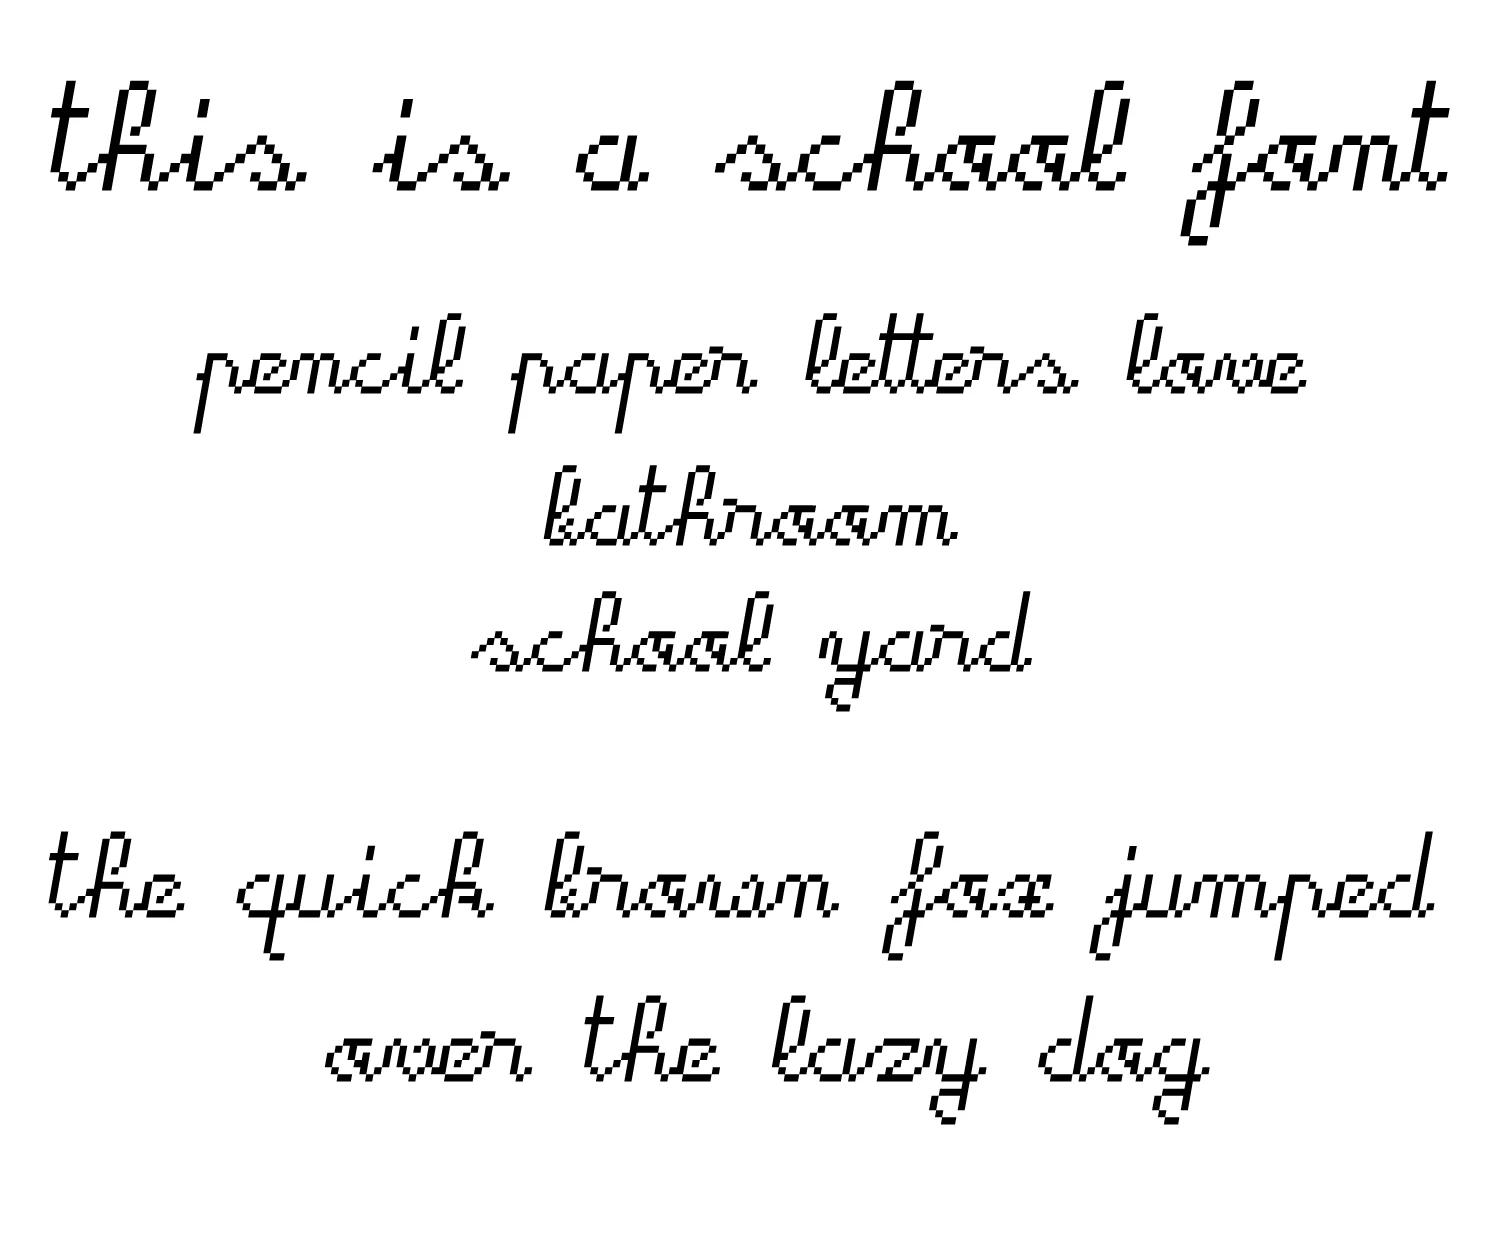 this is a school font
pencil paper letters love
bathroom
school yard
the quick brown fox jumped
over the lazy dog